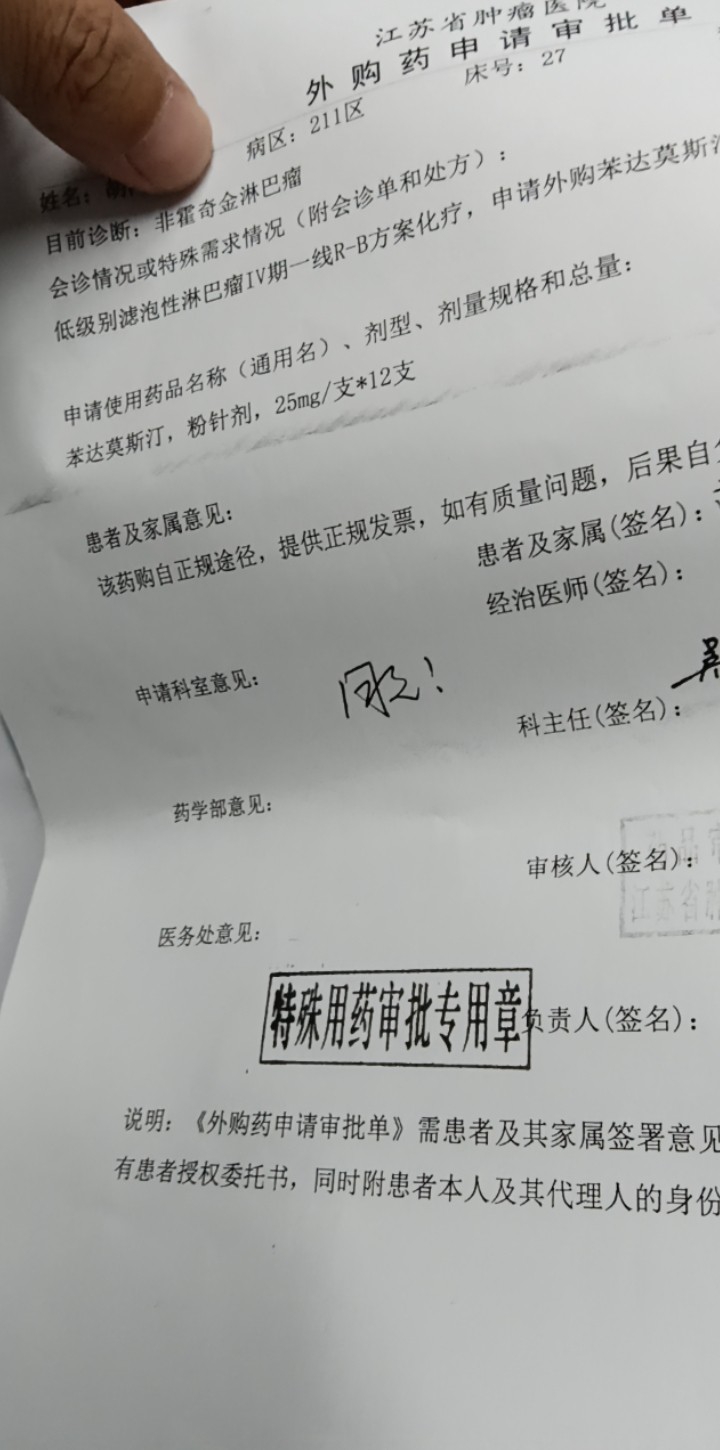 江苏省肿瘤医院
外购药申请审批单
病区：211区 床号：27
姓名：
目前诊断：非霍奇金淋巴瘤
会诊情况或特殊需求情况（附会诊单和处方）：
低级别滤泡性淋巴瘤IV期一线R-B方案化疗，申请外购苯达莫斯汀
申请使用药品名称（通用名）、剂型、剂量规格和总量：
苯达莫斯汀，粉针剂，25mg/支*12支
患者及家属意见：
该药购自正规途径，提供正规发票，如有质量问题，后果自
患者及家属(签名)：
经治医师(签名)：
申请科室意见： 同意！
科主任(签名)：
药学部意见：
审核人(签名)：
药品审
江苏省肿
医务处意见：
特殊用药审批专用章
负责人(签名)：
说明：《外购药申请审批单》需患者及其家属签署意见
有患者授权委托书，同时附患者本人及其代理人的身份